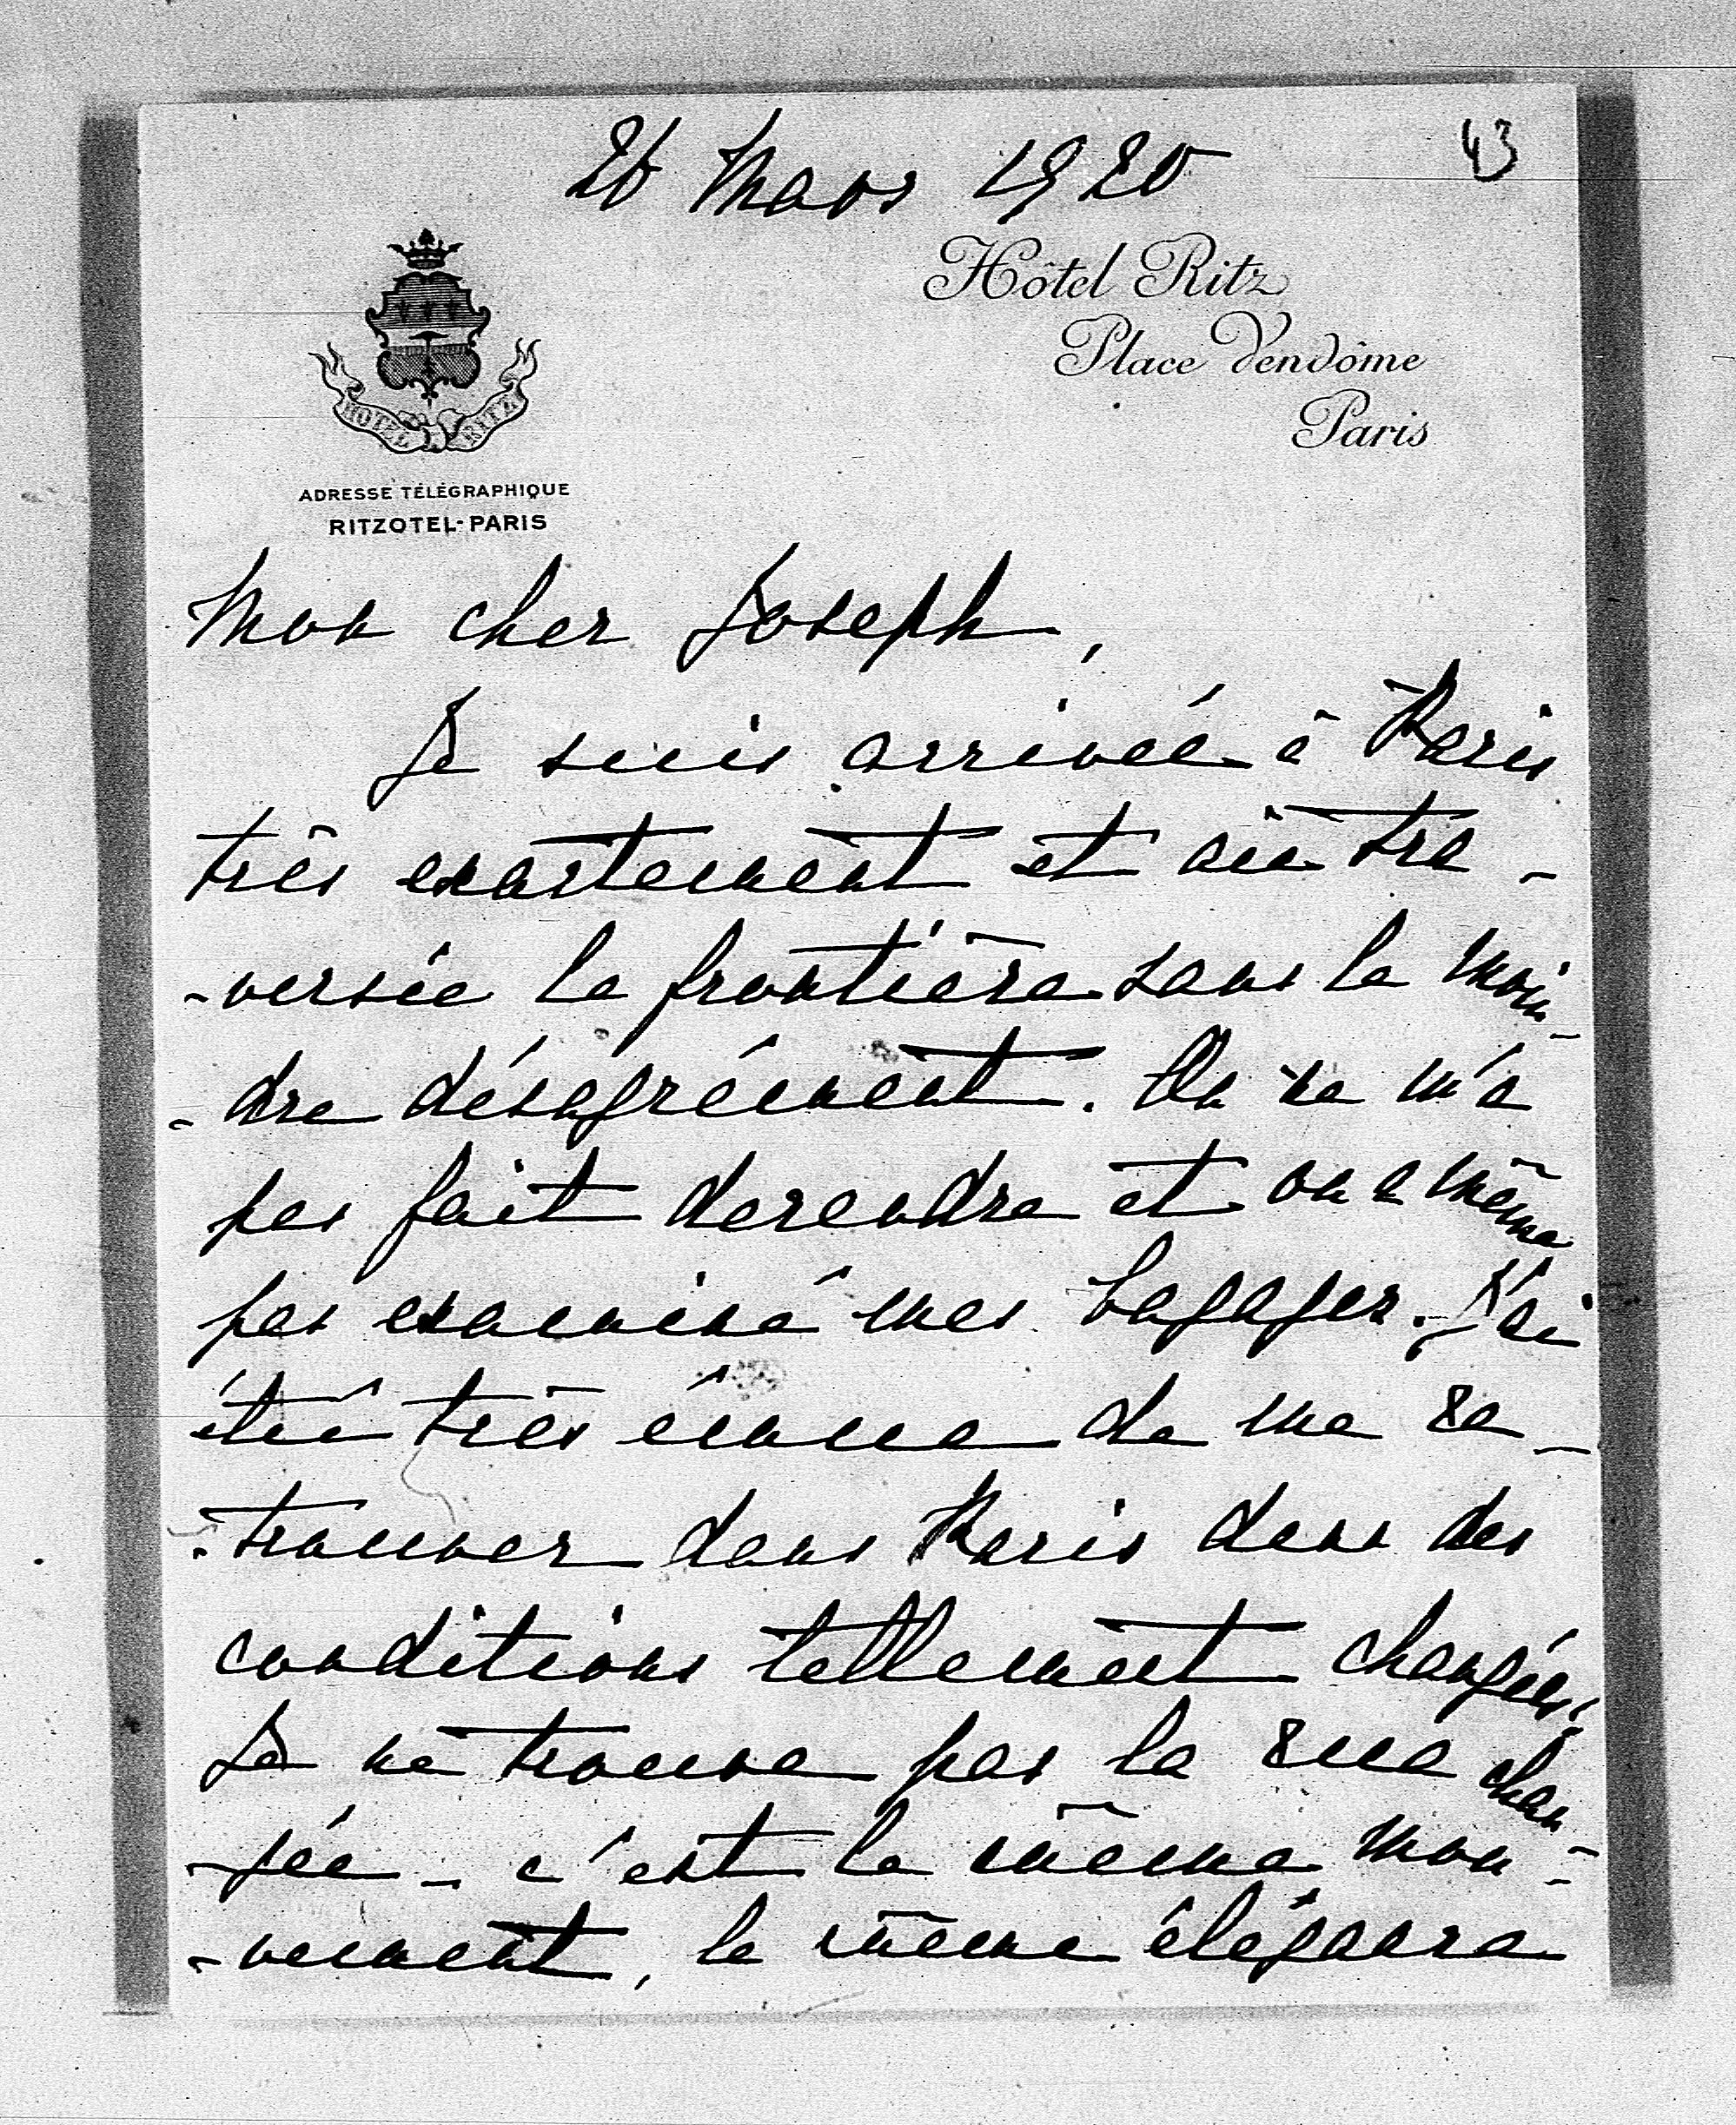 43
26 Mars 1920
Hôtel Ritz
Place Vendôme
Paris
HOTEL RITZ
ADRESSE TÉLÉGRAPHIQUE
RITZOTEL-PARIS
Mon cher Joseph,
Je suis arrivée à Paris
très exactement et ai tra-
-versée la frontière sans le moin-
-dre désagrément. On ne m'a
pas fait descendre et on a même
pas examiné mes bagages. J'ai
été très émue de me re-
-trouver dans Paris dans des
conditions tellement changées.
Je ne trouve pas la rue chan-
-gée - c'est le même mou-
-vement, la même élégance